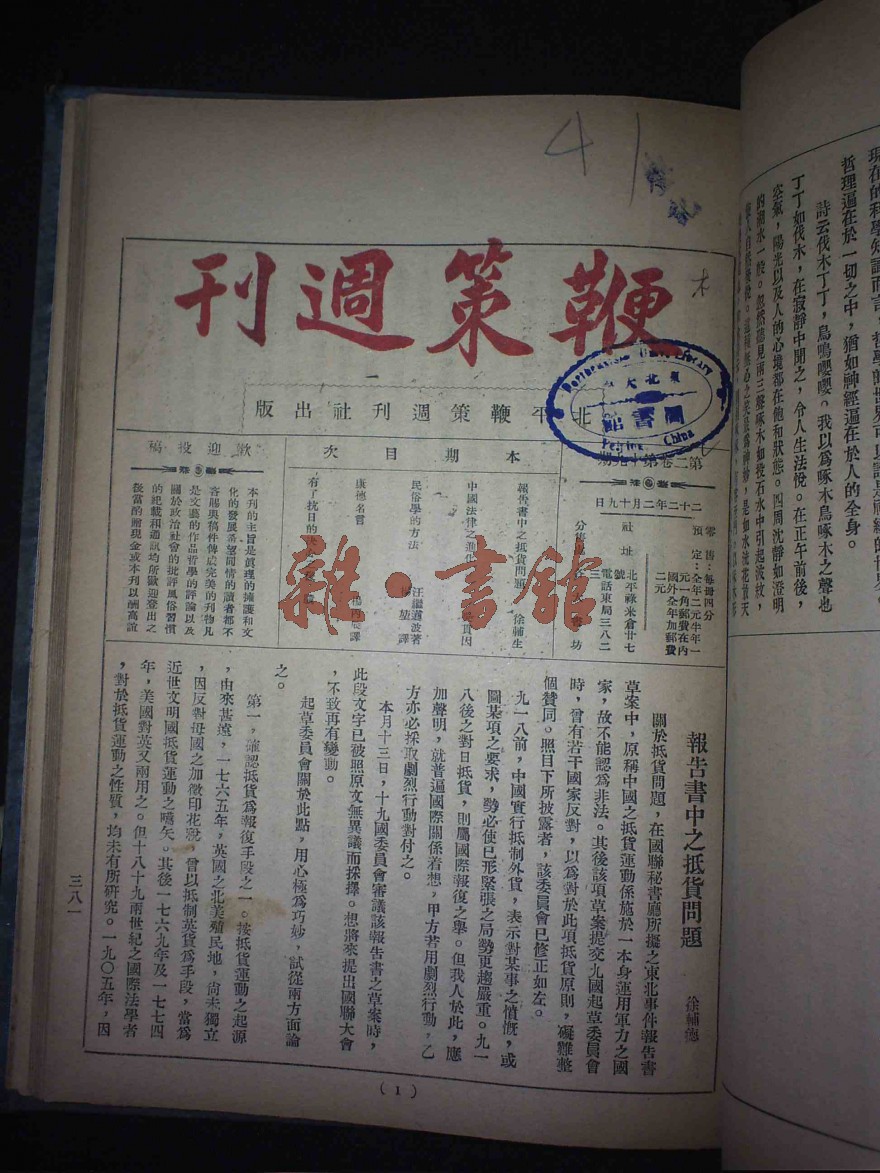 41
鞭策週刊
北平鞭策週刊社出版
Northeastern Univ. Library
東北大學
圖書館
Peiping China
第二卷第十九期
二十二年二月十九日
零售：每冊四分
預定：全年二元半年一
元一角郵費在內
國外全年加郵費
二元
社址：北平祿米倉廿七
號
電話東局三八二
三
本期目次
報告書中之抵貨問題
徐輔生
中國法律之進化
民俗學的方法
汪繼迺波著
楊堃譯
康德名言
楊丙辰譯
有了抗日的
歡迎投稿
本刊的主旨是眞理的擁護和文
化的發展希望同情的讀者都不
客賜與稿件俾成完美的刊物凡
是文藝的作品哲學的評論以及
關於政治社會的批評風俗習慣
的記載和通訊均所歡迎登出之
後當酌贈現金或本刊以酬高誼
雜·書館
報告書中之抵貨問題
徐輔德
關於抵貨問題，在國聯秘書廳所擬之東北事件報告書
草案中，原稱中國之抵貨運動係施於一本身運用軍力之國
家，故不能認爲非法。其後該項草案提交九國起草委員會
時，曾有若干國家反對，以爲對於此項抵貨原則，礙難整
個贊同。照目下所披露者，該委員會已修正如左。
九一八前，中國實行抵制外貨，表示對某事之憤慨，或
圖某項之要求，勢必使已形緊張之局勢更趨嚴重。九一
八後之對日抵貨，則屬國際報復之舉。但我人於此，應
加聲明，就普遍國際關係着想，甲方若用劇烈行動，乙
方亦必採取劇烈行動對付之。
本月十三日，十九國委員會審議該報告書之草案時，
此段文字已被照原文無異議而採擇。想將來提出國聯大會
，不致再有變動。
起草委員會關於此點，用心極爲巧妙，試從兩方面論
之。
第一，確認抵貨爲報復手段之一。按抵貨運動之起源
，由來甚遠，一七六五年，英國之北美殖民地，尙未獨立
，因反對母國之加徵印花稅，曾以抵制英貨爲手段，當爲
近世文明國抵貨運動之嚆矢。其後一七六九年及一七七四
年，美國對英又兩用之。但十八十九兩世紀之國際法學者
，對於抵貨運動之性質，均未有所研究。一九〇五年，因
三八一
（1）
現在的科學知識而言，哲學的世界可以說是神經的世界
哲理遍在於一切之中，猶如神經遍在於人的全身。
詩云伐木丁丁，鳥鳴嚶嚶。我以爲啄木鳥啄木之聲也
丁丁如伐木，在寂靜中聞之，令人生法悅。在正午前後，
空氣，陽光以及人的心境都在飽和狀態。四周沈靜如澄明
的湖水一般。忽然聽見兩三聲啄木如投石水中引起波紋，